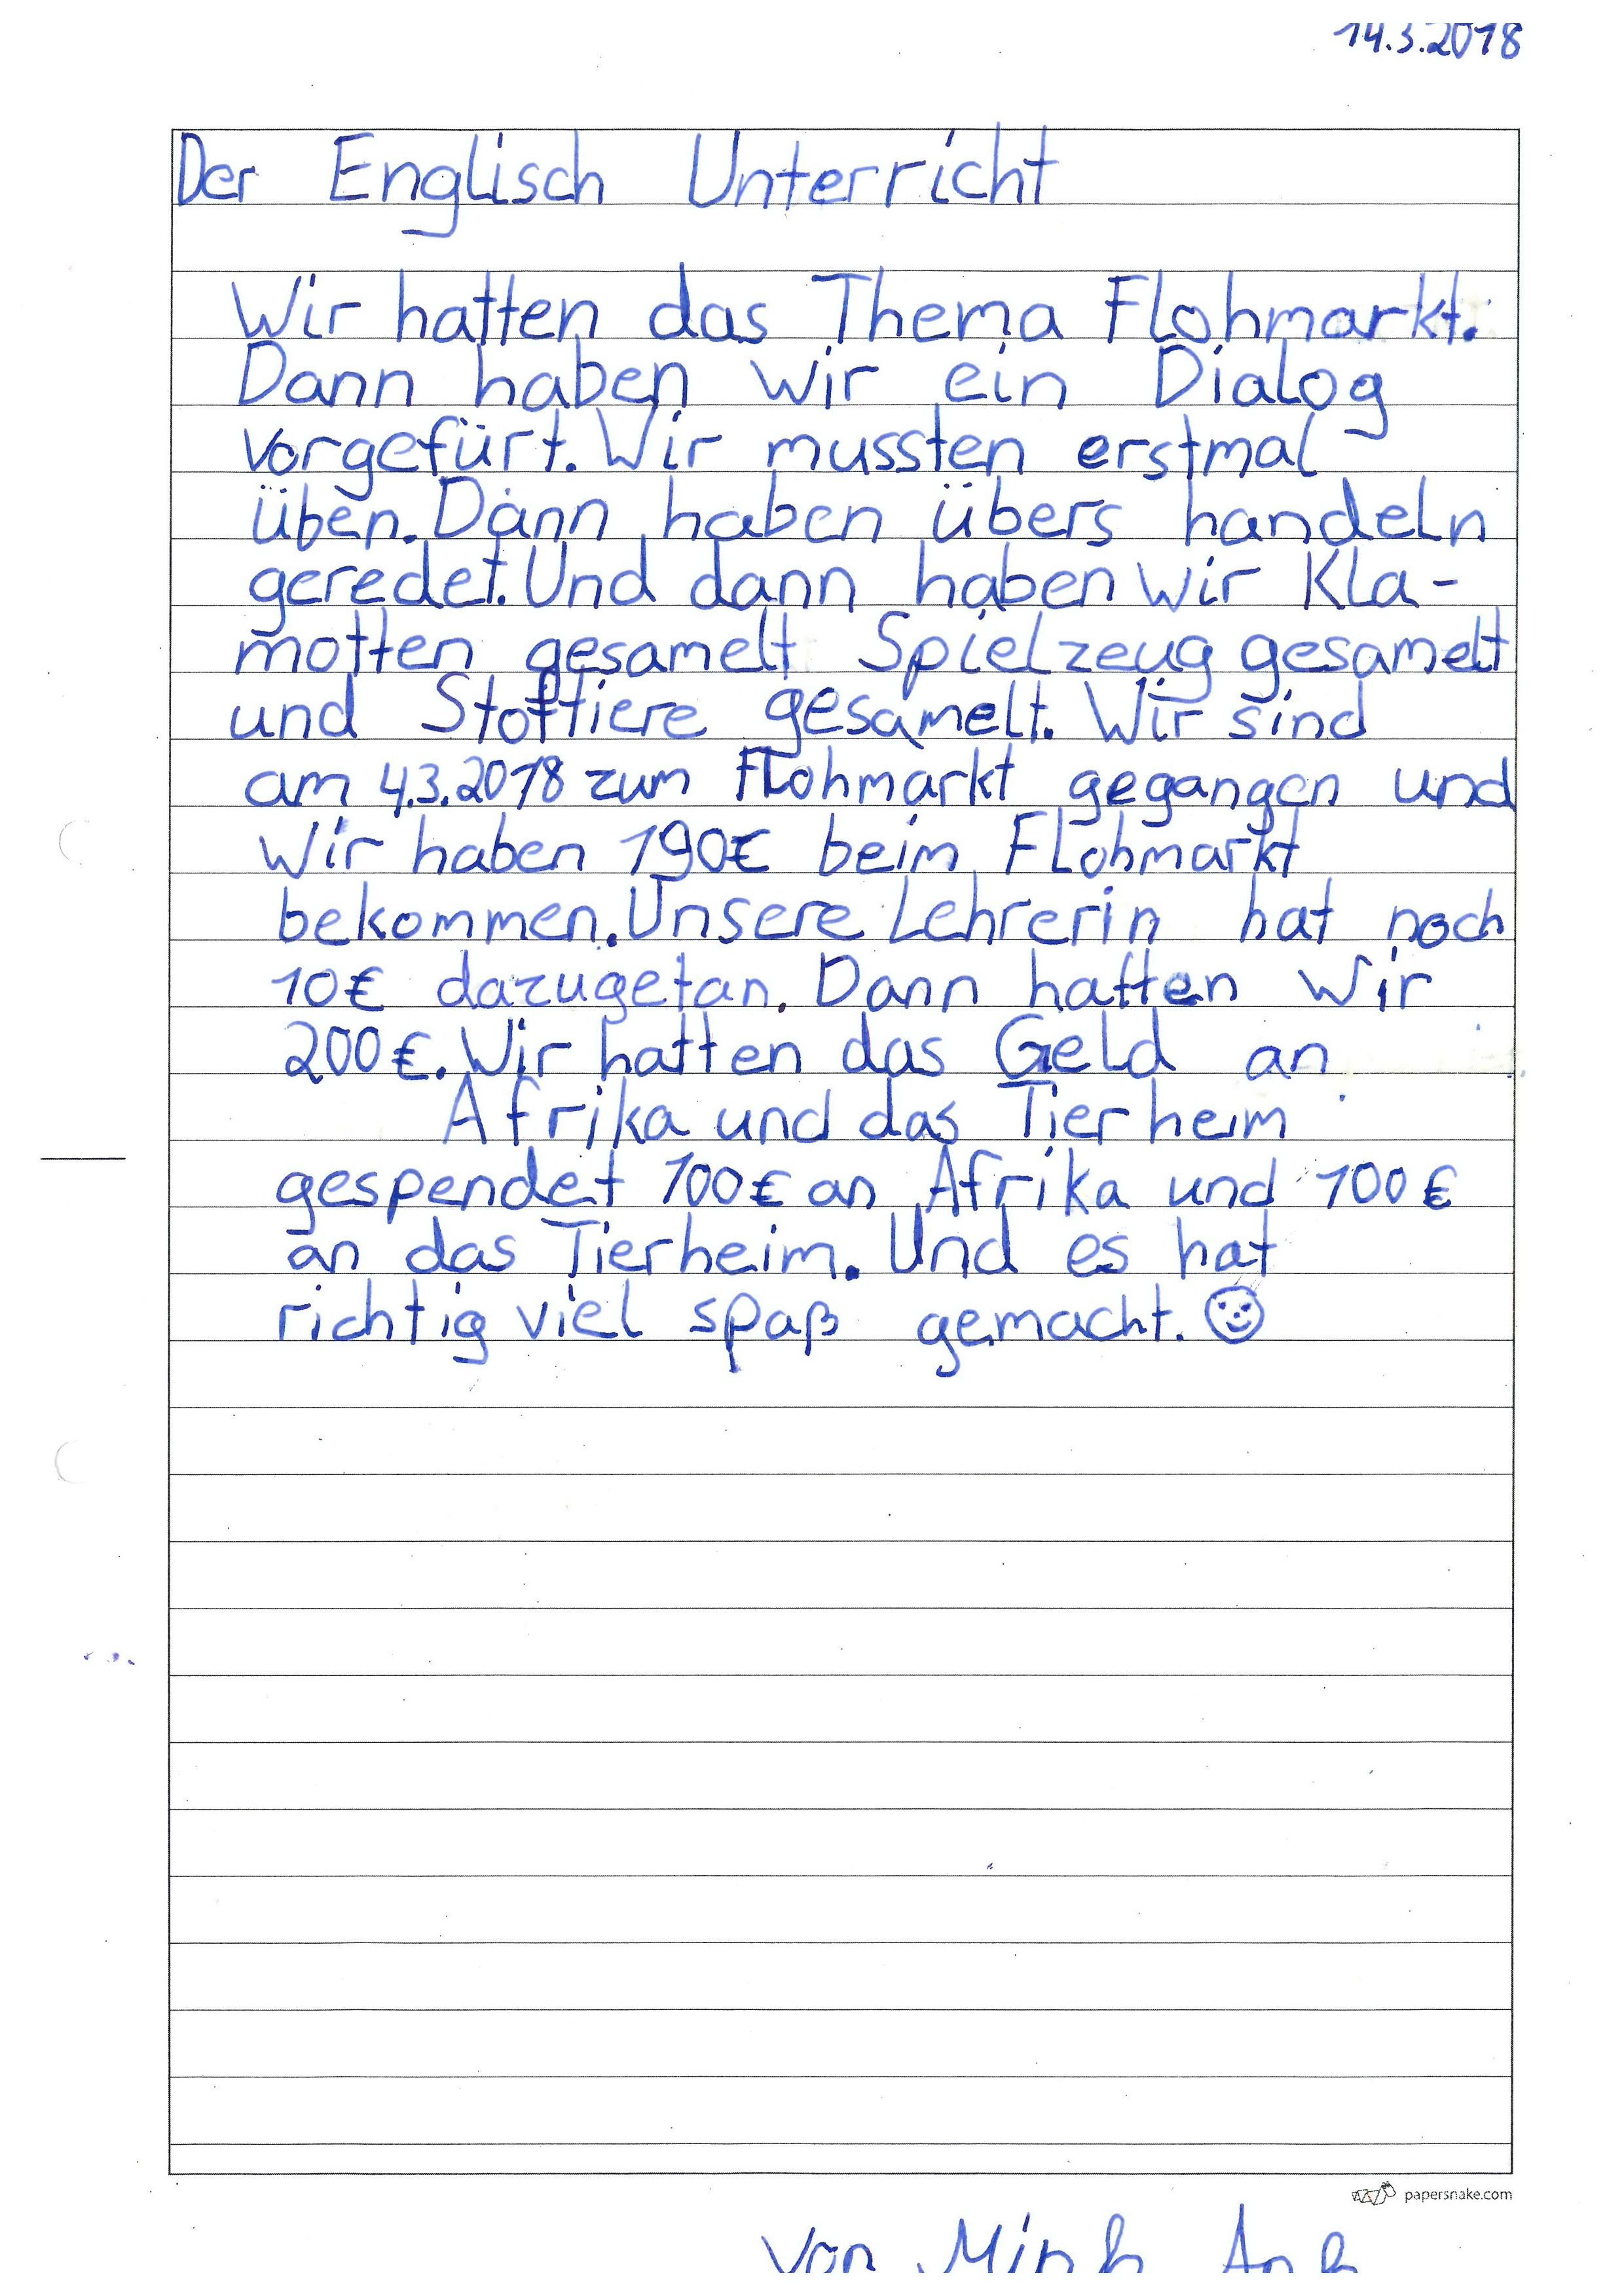 14.3.2018
Der Englisch Unterricht
Wir hatten das Thema Flohmarkt.
Dann haben wir ein Dialog
vorgefürt. Wir mussten erstmal
üben. Dann haben übers handeln
geredet. Und dann haben wir Kla-
motten gesamelt Spielzeug gesamelt
und Stofftiere gesamelt. Wir sind
am 4.3.2018 zum Flohmarkt gegangen und
Wir haben 190€ beim Flohmarkt
bekommen. Unsere Lehrerin hat noch
10€ dazugetan. Dann hatten Wir
200€. Wir hatten das Geld an
Afrika und das Tierheim
gespendet 100€ an Afrika und 100€
an das Tierheim. Und es hat
richtig viel spaß gemacht.
papersnake.com
Von Minh Anh